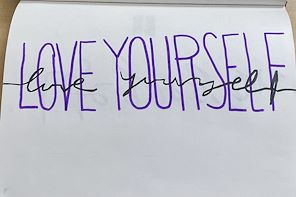 LOVE YOURSELF
love yourself